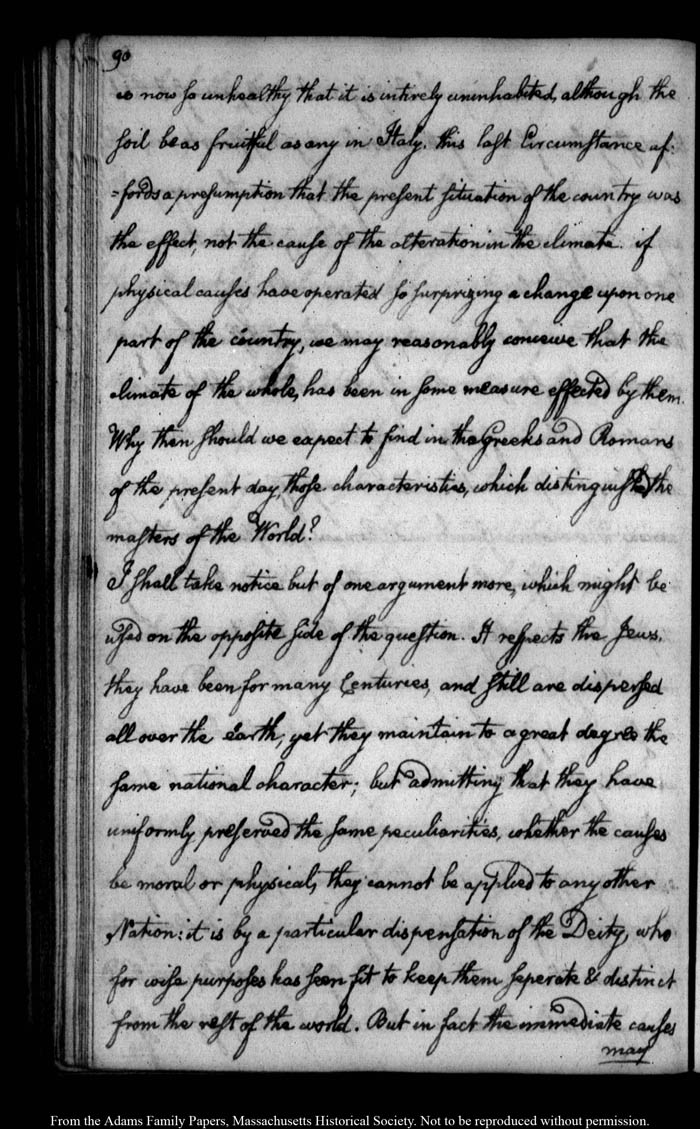 90
is now so unhealthy that it is intirely uninhabited, although the
soil be as fruitful as any in Italy. this last Circumstance af:
=fords a presumption that the present situation of the country was
the effect, not the cause of the alteration in the climate. if
physical causes have operated so surprizing a change upon one
part of the country, we may reasonably conceive that the
climate of the whole, has been in some measure effected by them.
Why then should we expect to find in the Greeks and Romans
of the present day, those characteristics, which distinguished the
masters of the World?
I shall take notice but of one argument more, which might be
used on the opposite side of the question. It respects the Jews.
they have been for many Centuries, and still are dispersed
all over the Earth, yet they maintain to a great degree the
same national character; but admitting that they have
uniformly preserved the same peculiarities, whether the causes
be moral or physical, they cannot be applied to any other
Nation: it is by a particular dispensation of the Deity, who
for wise purposes has seen fit to keep them seperate & distinct
from the rest of the world. But in fact the immediate causes
may
From the Adams Family Papers, Massachusetts Historical Society. Not to be reproduced without permission.